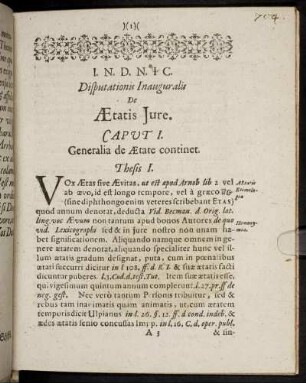 )(1)(
I. N. D. N. I C.
Disputationis Inauguralis
De
Ætatis Jure.
CAPUT I.
Generalia de Ætate continet.
Thesis I.
VOx Ætas sive Ævitas, ut est apud Arnob lib 2 vel
ab ævo, id est longo tempore, vel à græco
(sine diphthongo enim veteres scribebant ETAS)
quod annum denotat, deducta Vid. Becman. d. Orig. lat.
ling. voc Ævum non tantum apud bonos Autores de quo
vid. Lexicographi sed & in jure nostro non unam ha-
bet significationem. Aliquando namque omnem in ge-
nere ætatem denotat, aliquando specialiter hunc vel il-
lum ætatis gradum designat, puta, cum in pœnalibus
ætati succurri dicitur in l 108. ff. d R. I. & suæ ætatis facti
dicuntur puberes. l. 3. Cod. d. test. Tut. Item suæ ætati esse,
qui vigesimum quintum annum complerunt. l. 27. pr. ff de
neg. gest. Nec verò tantum Personis tribuitur, sed &
rebus tam inanimatis quàm animatis, ut, cum ætatem
temporis dicit Ulpianus in l. 26. §. 12. ff. d cond. indeb. &
ædes ætatis senio concussas Imp. in l. 16. C. d. oper. publ.
A 3
& sin-